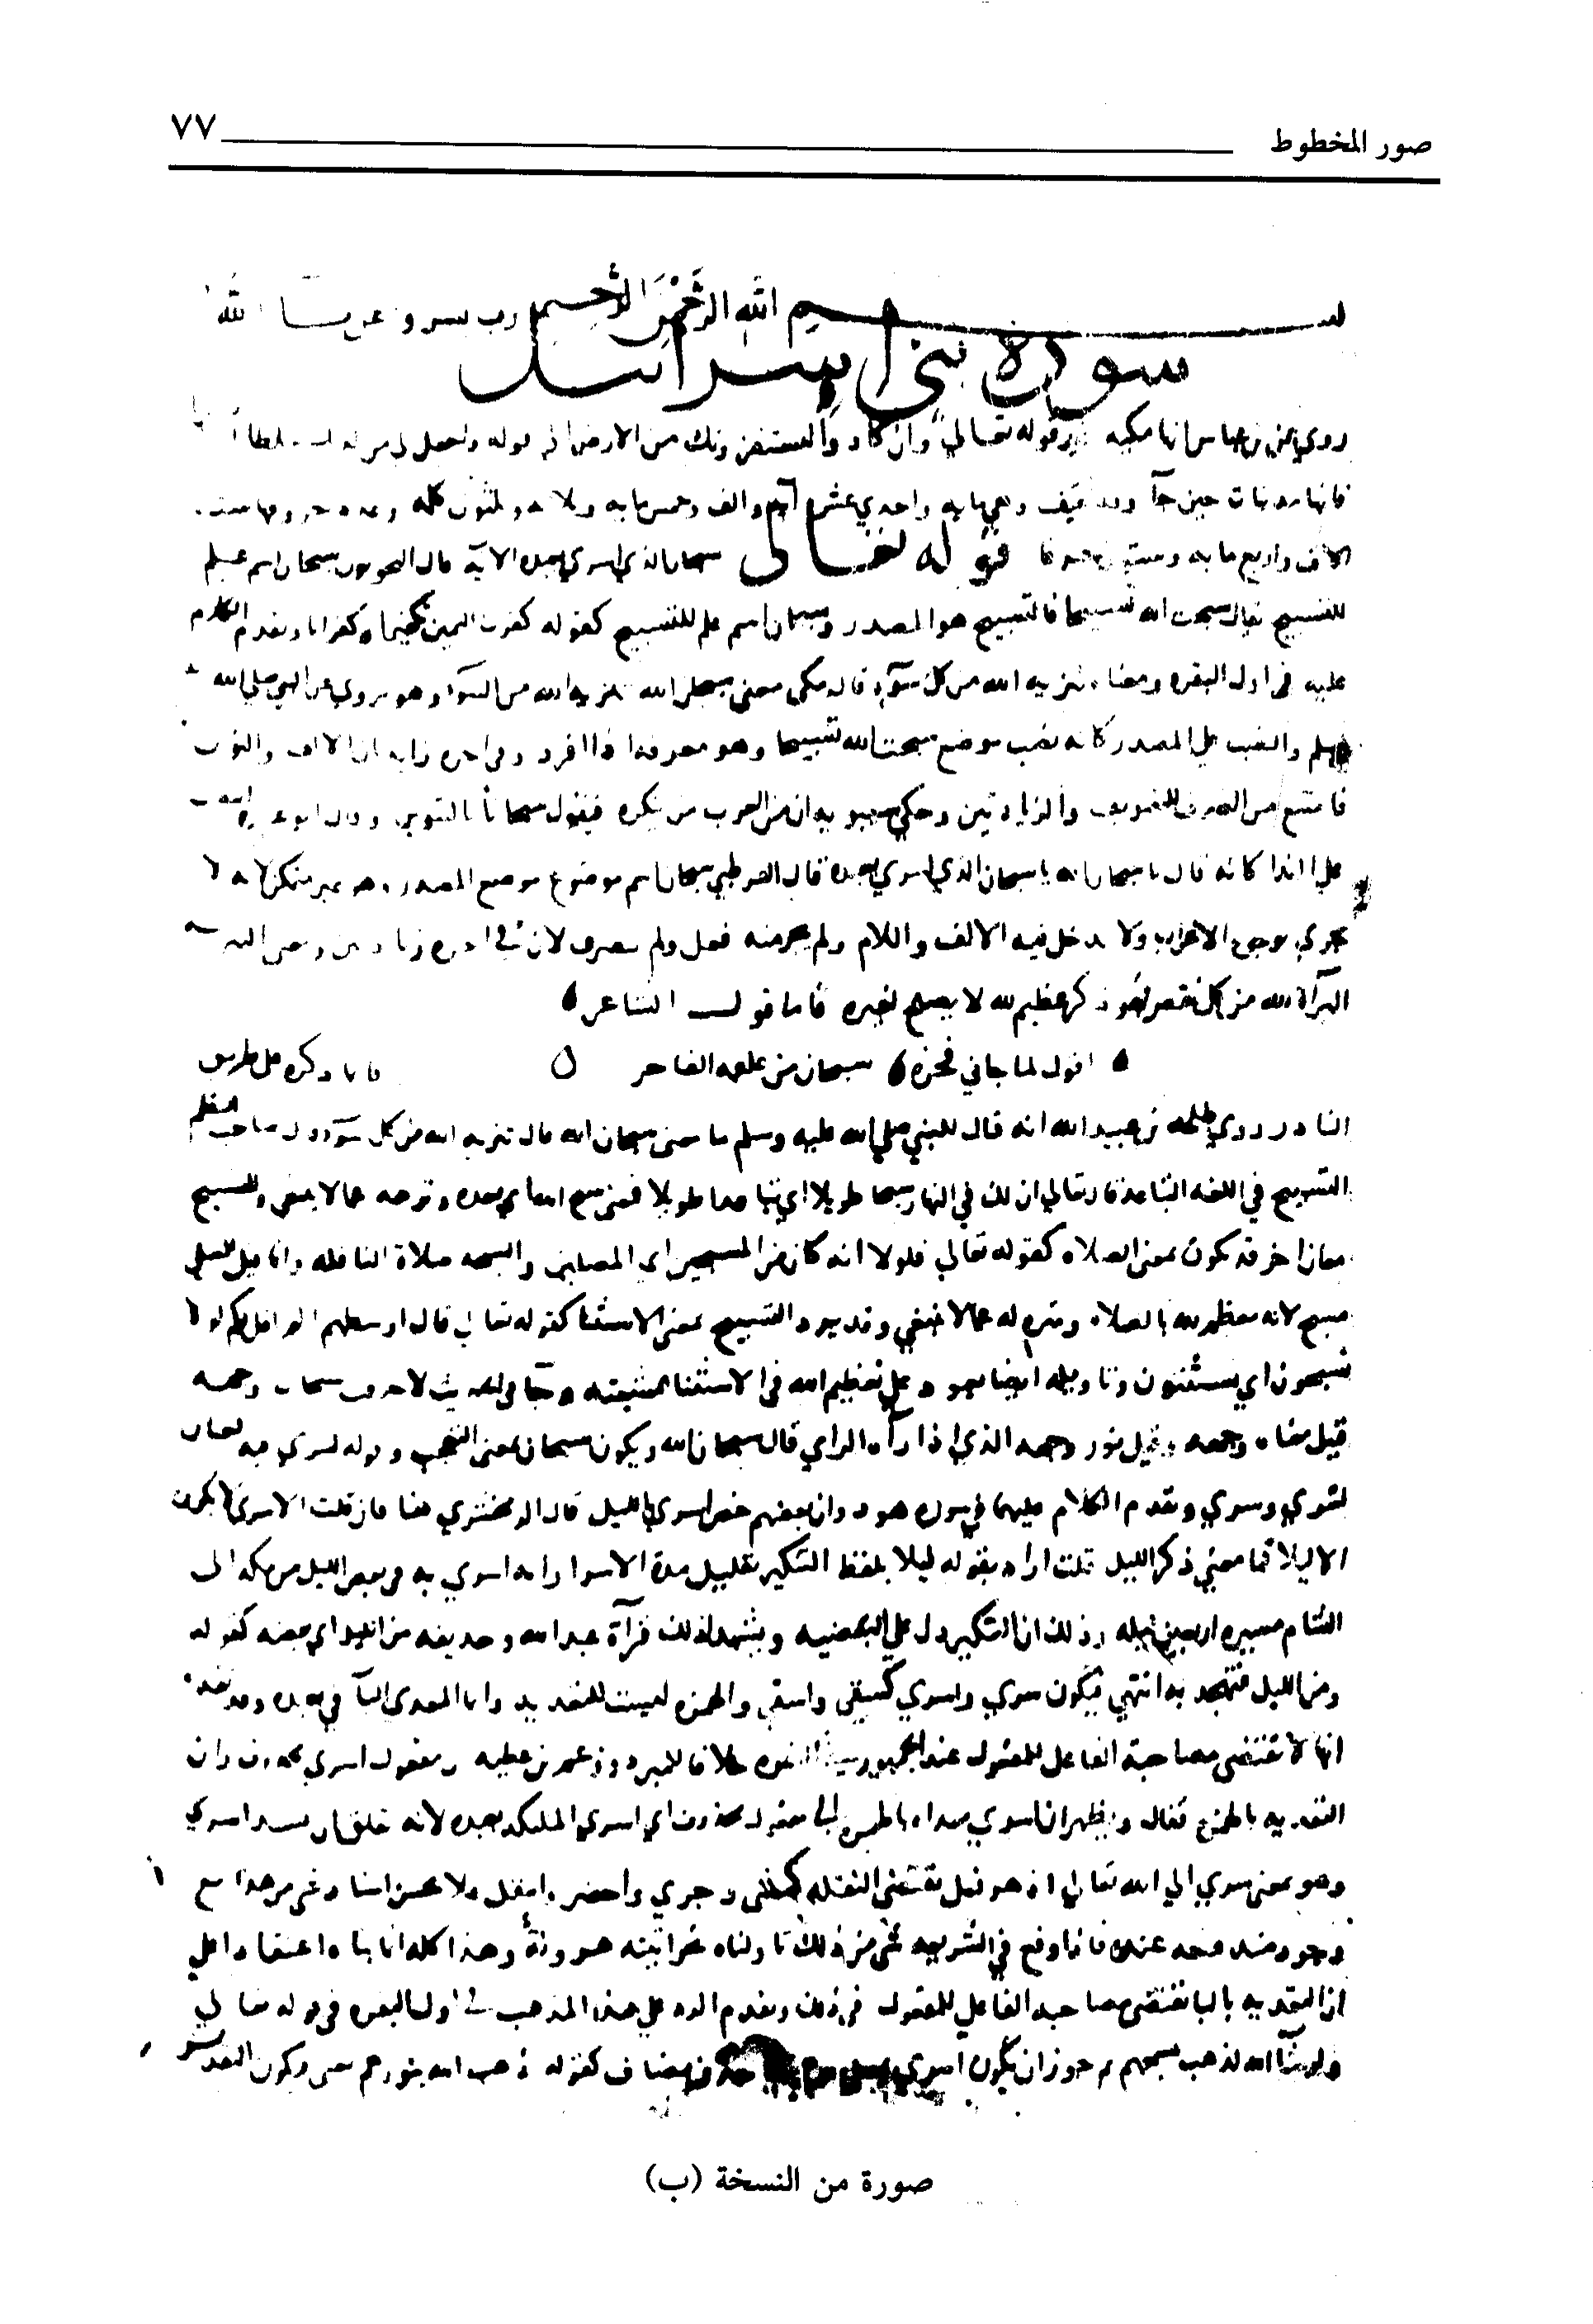 صور المخطوط ٧٧
بسم الله الرحمن الرحيم رب يسر و الله
سورة بني إسرائيل
روي عن بن عباس انها مكيه غير قوله تعالي وان كادوا ليستفزونك من الارض الي قوله واجعل لي من لدنك سلطانا
فانها مدنيات حين جآ وفد ثقيف وهي مايه واحدي عشر آية والف وخمس مايه وثلاثه وثلثون كلمه وعدد حروفها سته
الاف واربع مايه وستون حرفا قوله تعالى سبحان الذي اسري بعبده الاية قال النحويون سبحان اسم علم
للتسبيح يقال سبحت الله تسبيحا فالتسبيح هو المصدر وسبحان اسم علم للتسبيح كقوله كفرت اليمين تكفيرا وكفرانا وتقدم الكلام
عليه في اول البقره ومعناه تنزيه الله من كل سوء قال مكي معنى سبحان الله تنزيه الله من السوء وهو مروي عن النبي صلى الله
وسلم والنصب علي المصدر كانه نصب موضع سبحت الله تسبيحا وهو معرفه اذا افرد وفي اخره زايدان الالف والنون
فامتنع من الصرف للتعريف والزيادتين وحكي سيبويه ان من العرب من ينكره فيقول سبحانا بالتنوين وقال ابو عبيد
علي الندا كانه قال يا سبحان الله يا سبحان الذي اسري بعبده قال القرطبي سبحان اسم موضوع موضع المصدر وهو غير متمكن لانه لا
يجري بوجوه الاعراب ولا يدخل فيه الالف واللام ولم يجر منه فعل ولم ينصرف لان في اخره زيادتين ومعناه التنزيه
البرآة لله من كل نقص فهو ذكر عظيم لله لا يصلح لغيره فاما قول الشاعر
اقول لما جاني فخره سبحان من علقمه الفاخر فانما ذكره على طريق
النادر روي طلحه بن عبيد الله انه قال للنبي صلي الله عليه وسلم ما معنى سبحان الله قال تنزيه الله من كل سوء وقال صاحب النظم
التسبيح في اللغه التباعد قال تعالي ان لك في النهار سبحا طويلا اي تباعدا طويلا فمعنى سبح الله اي بعده ونزهه عما لا ينبغي وللتسبيح
معان اخر قد يكون بمعنى الصلاه كقوله تعالي فلولا انه كان من المسبحين اي المصلين والسبحه صلاة النافله وانما قيل للمصلي
مسبح لانه معظم لله بالصلاه ومنزه له عما لا ينبغي وقد يرد التسبيح بمعنى الاستثنا كقوله تعالي قال اوسطهم الم اقل لكم لولا
تسبحون اي تستثنون وتاويله ايضا يعود علي تعظيم الله في الاستثنا بمشيئته وجآ في الحديث لاحرقت سبحات وجهه
قيل معناه وجهه وقيل نور وجهه الذي اذا رآه الراي قال سبحان الله ويكون سبحان بمعنى التعجب وقوله اسري فيه لغتان
اسري وسري وتقدم الكلام عليهما في سورة هود وان بعضهم خص اسري بالليل قال الزمخشري هنا فان قلت الاسري لا يكون
الا ليلا فما معني ذكر الليل قلت اراد بقوله ليلا بلفظ التنكير تقليل مدة الاسرا وانه اسري به في بعض الليل من مكه الى
الشام مسيره اربعين ليله وذلك ان التنكير دل علي البعضيه ويشهد لذلك قرآة عبد الله وحذيفه من الليل اي بعضه كقوله
ومن الليل فتهجد به انتهي فيكون سري واسري كسقي واسقي والهمزه ليست للتعديه وانما المعدى البآ في بعبده وقد تقدم
انها لا تقتضي مصاحبة الفاعل للمفعول عند الجمهور خلافا للمبرد وزعم بن عطيه ان مفعول اسري محذوف وان
التعديه بالهمزه فقال ويظهر ان اسري معداه بالهمزه الي مفعول محذوف اي اسري الملئكه بعبده لانه يقلق ان يسند اسري
وهو بمعنى سري الي الله تعالي اذ هو فعل يقتضي النقله كمشى وجري واحضر وانتقل ولا يحسن اسناد شي من هذا مع
وجود مندوحه عنه فاذا وقع في الشريعه شي من ذلك تاولناه نحو اتيته هرولة وهذا كله انما بناه اعتقادا علي
ان التعديه بالبا تقتضي مصاحبه الفاعل للمفعول في ذلك وتقدم الرد علي هذا المذهب في اول البقره في قوله تعالي
ولو شآ الله لذهب بسمعهم ثم جوز ان يكون اسري حذف مضاف كقوله ذهب الله بنورهم يعني ويكون التقدير
صورة من النسخة (ب)